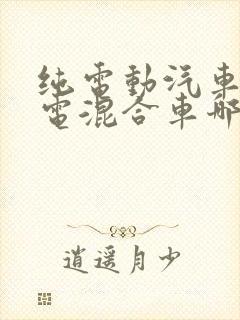 纯電動汽車
電混合車哪
逍遥月少